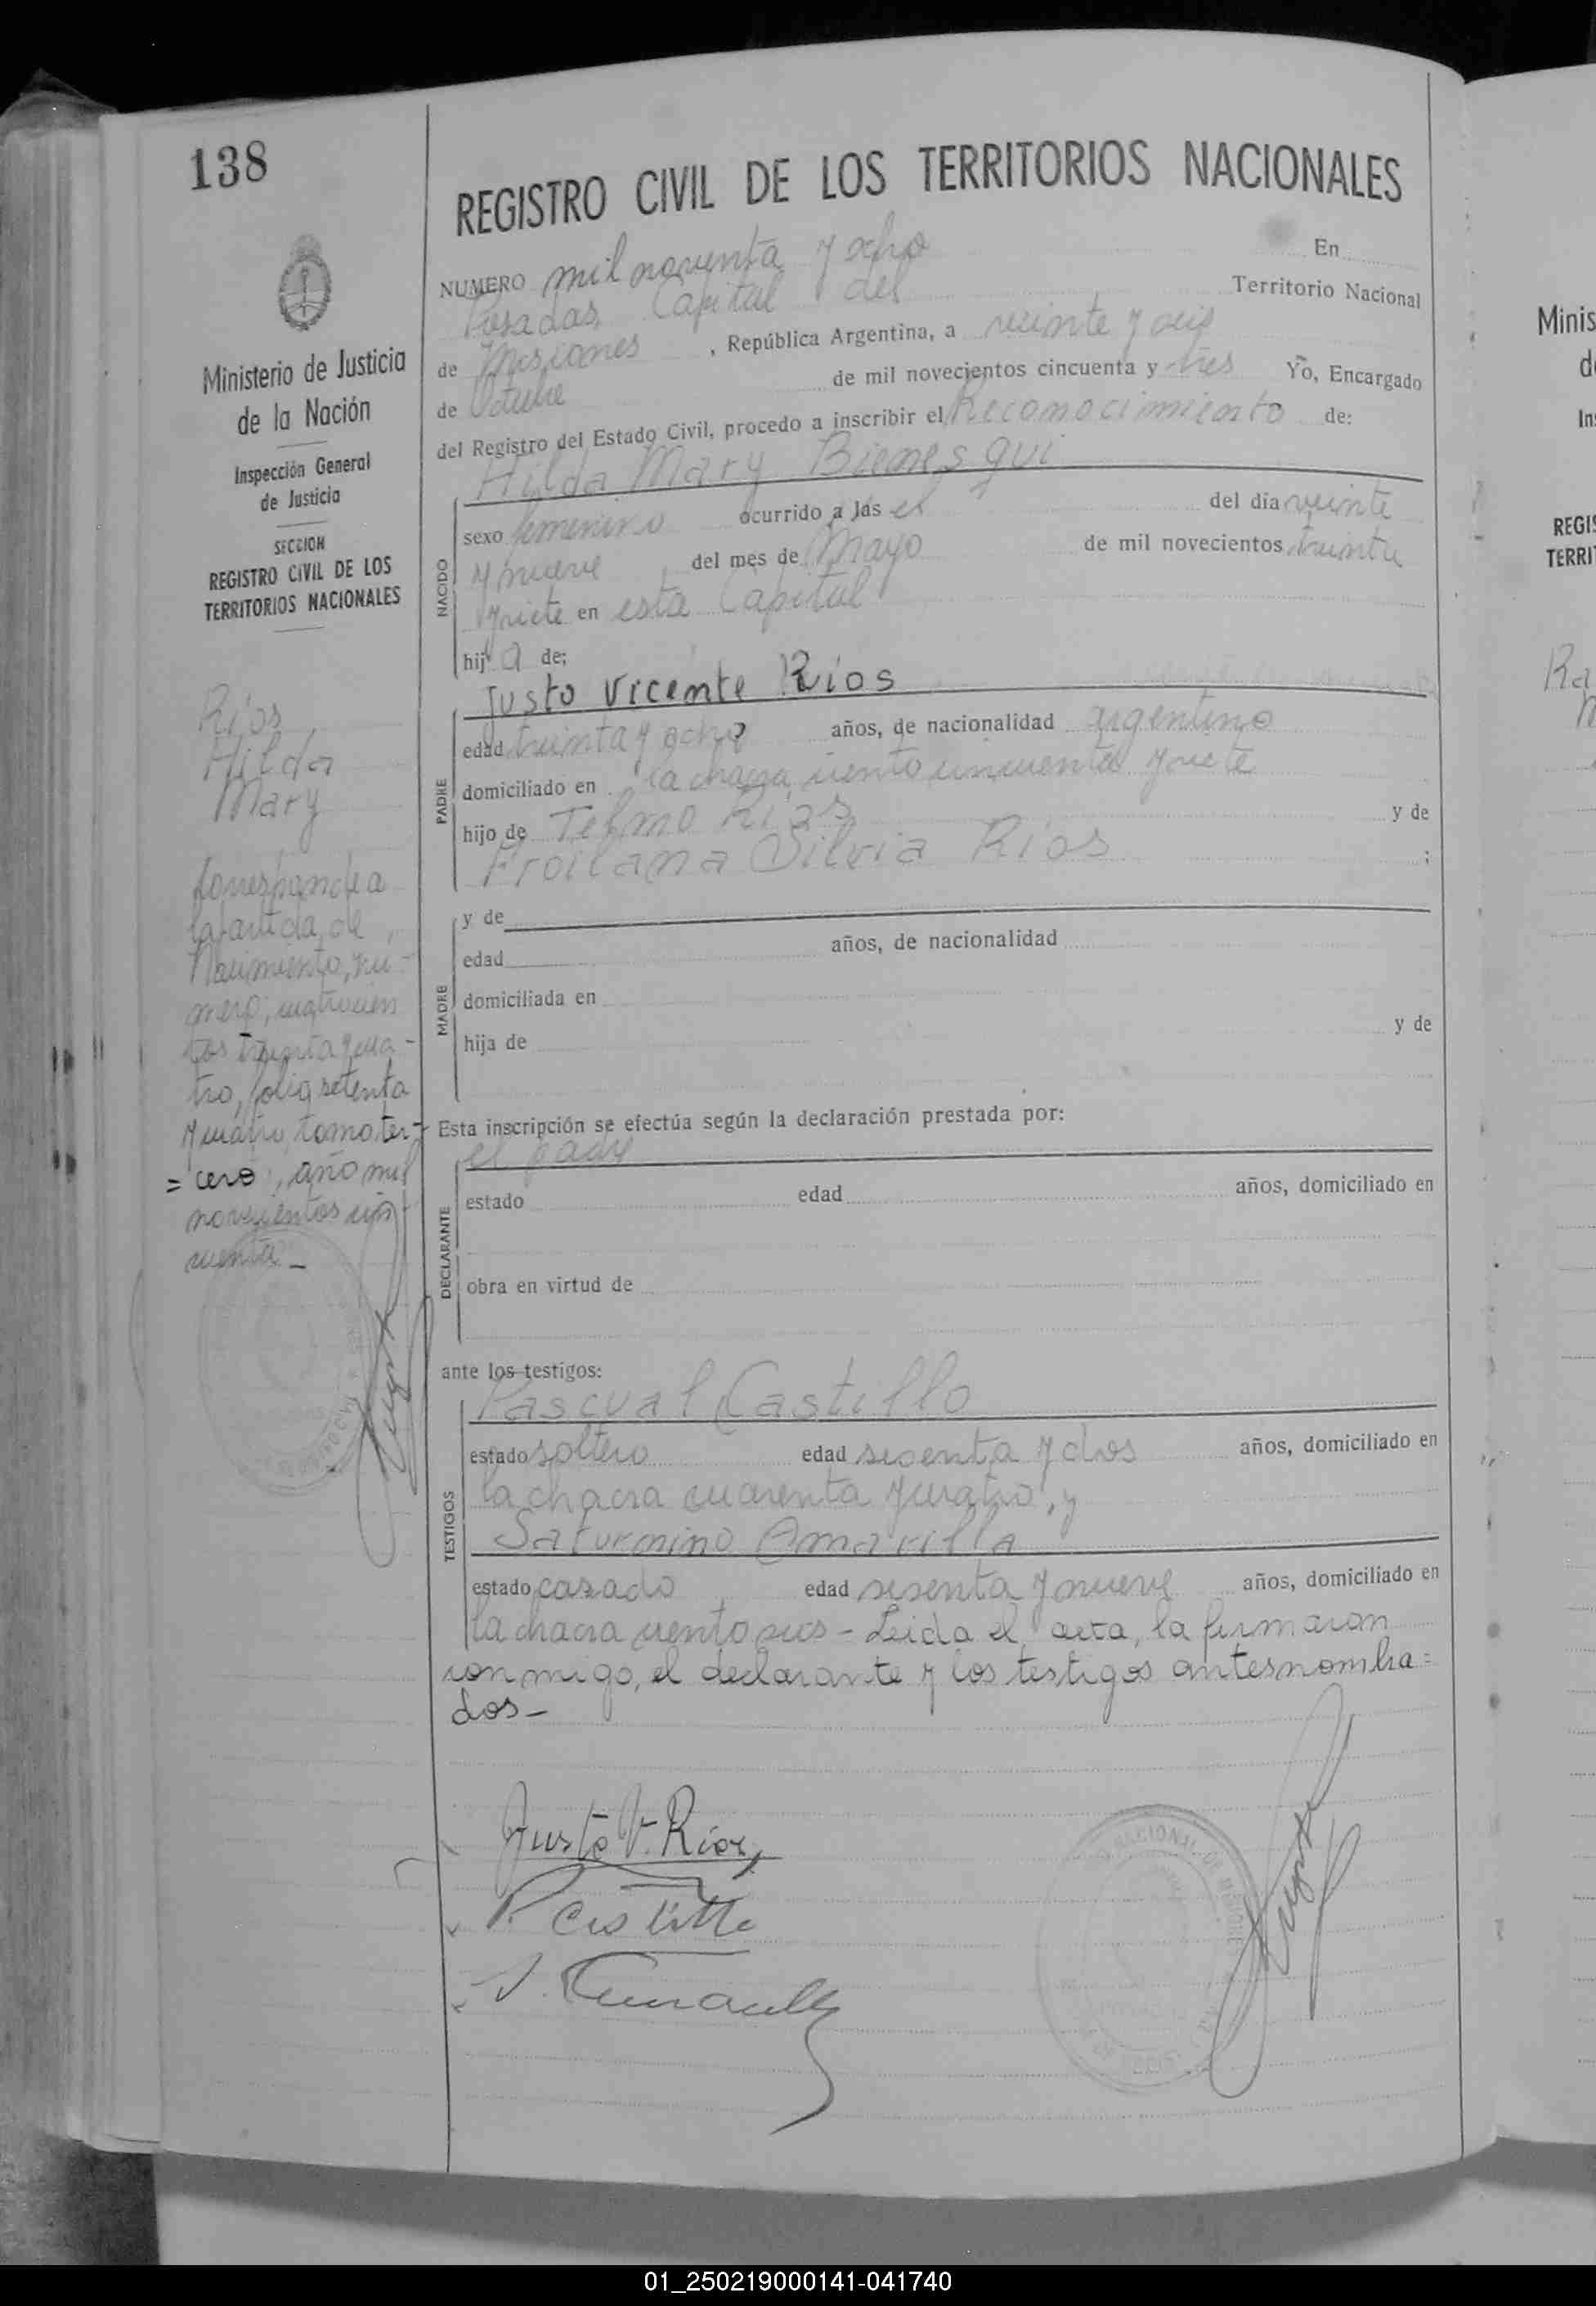 138
REGISTRO CIVIL DE LOS TERRITORIOS NACIONALES
NUMERO mil noventa y ocho En
Posadas, Capital del Territorio Nacional
de Misiones, República Argentina, a veinte y seis
de Octubre de mil novecientos cincuenta y tres Yo, Encargado
del Registro del Estado Civil, procedo a inscribir el Reconocimiento de:
Hilda Mary Bienesqui
sexo femenino ocurrido a las el del día veinte
y nueve del mes de Mayo de mil novecientos treinta
y siete en esta Capital
hij a de;
NACIDO
Justo Vicente Ríos
edad treinta y ocho años, de nacionalidad argentino
domiciliado en la chacra ciento cincuenta y siete
hijo de Telmo Ríos y de
Froilana Silvia Ríos ;
PADRE
y de
edad años, de nacionalidad
domiciliada en
hija de y de
MADRE
Esta inscripción se efectúa según la declaración prestada por:
el padre
estado edad años, domiciliado en
obra en virtud de
DECLARANTE
ante los testigos:
Pascual Castillo
estado soltero edad sesenta y dos años, domiciliado en
la chacra cuarenta y cuatro, y
Saturnino Amarilla
estado casado edad sesenta y nueve años, domiciliado en
la chacra ciento seis - Leida el acta, la firmaron
conmigo, el declarante y los testigos antesnombra=
dos-
TESTIGOS
Justo V. Ríos,
P. Castillo
Ministerio de Justicia
de la Nación
Inspección General
de Justicia
SECCION
REGISTRO CIVIL DE LOS
TERRITORIOS NACIONALES
Ríos
Hilda
Mary
Corresponde a
la partida de
Nacimiento, nú-
mero, cuatrocien
tos treinta y cua-
tro, folio setenta
y cuatro, tomo ter-
=cero, año mil
novecientos cin-
cuenta_
Minis
REGIS
TERRI
Ra
01_250219000141-041740